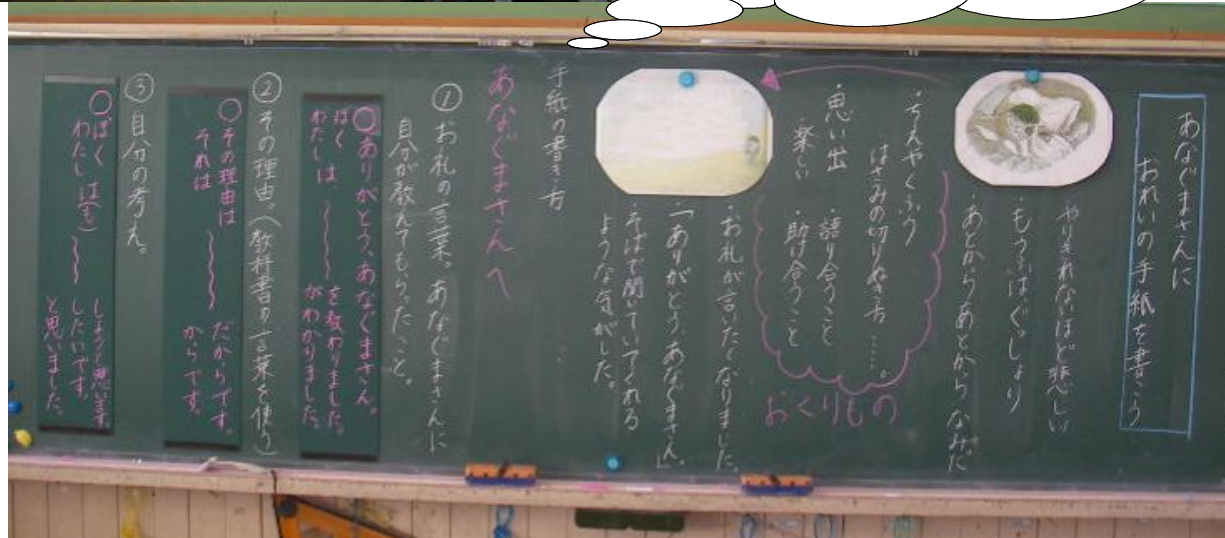 あなぐまさんに
おれいの手紙を書こう
やりきれないほど悲しい
もうふは、ぐっしょり
あとからあとから なみだ
・ちえやくふう
はさみの切りぬき方……。
・思い出 語り合うこと
・楽しい ・助け合うこと
おくりもの
・お礼が言いたくなりました。
・「ありがとう、あなぐまさん。」
・そばで聞いていてくれる
ような気がした。
手紙の書き方
あなぐまさんへ
①お礼の言葉。あなぐまさんに
自分が教えてもらったこと。
○ありがとう、あなぐまさん。
ぼく
わたしは 〜〜〜 を教わりました。
がわかりました。
②その理由。(教科書の言葉を使う)
○その理由は 〜〜〜 だからです。
それは からです。
③自分の考え。
○ぼく
わたしは(も) 〜〜〜 しようと思います。
したいです。
と思いました。